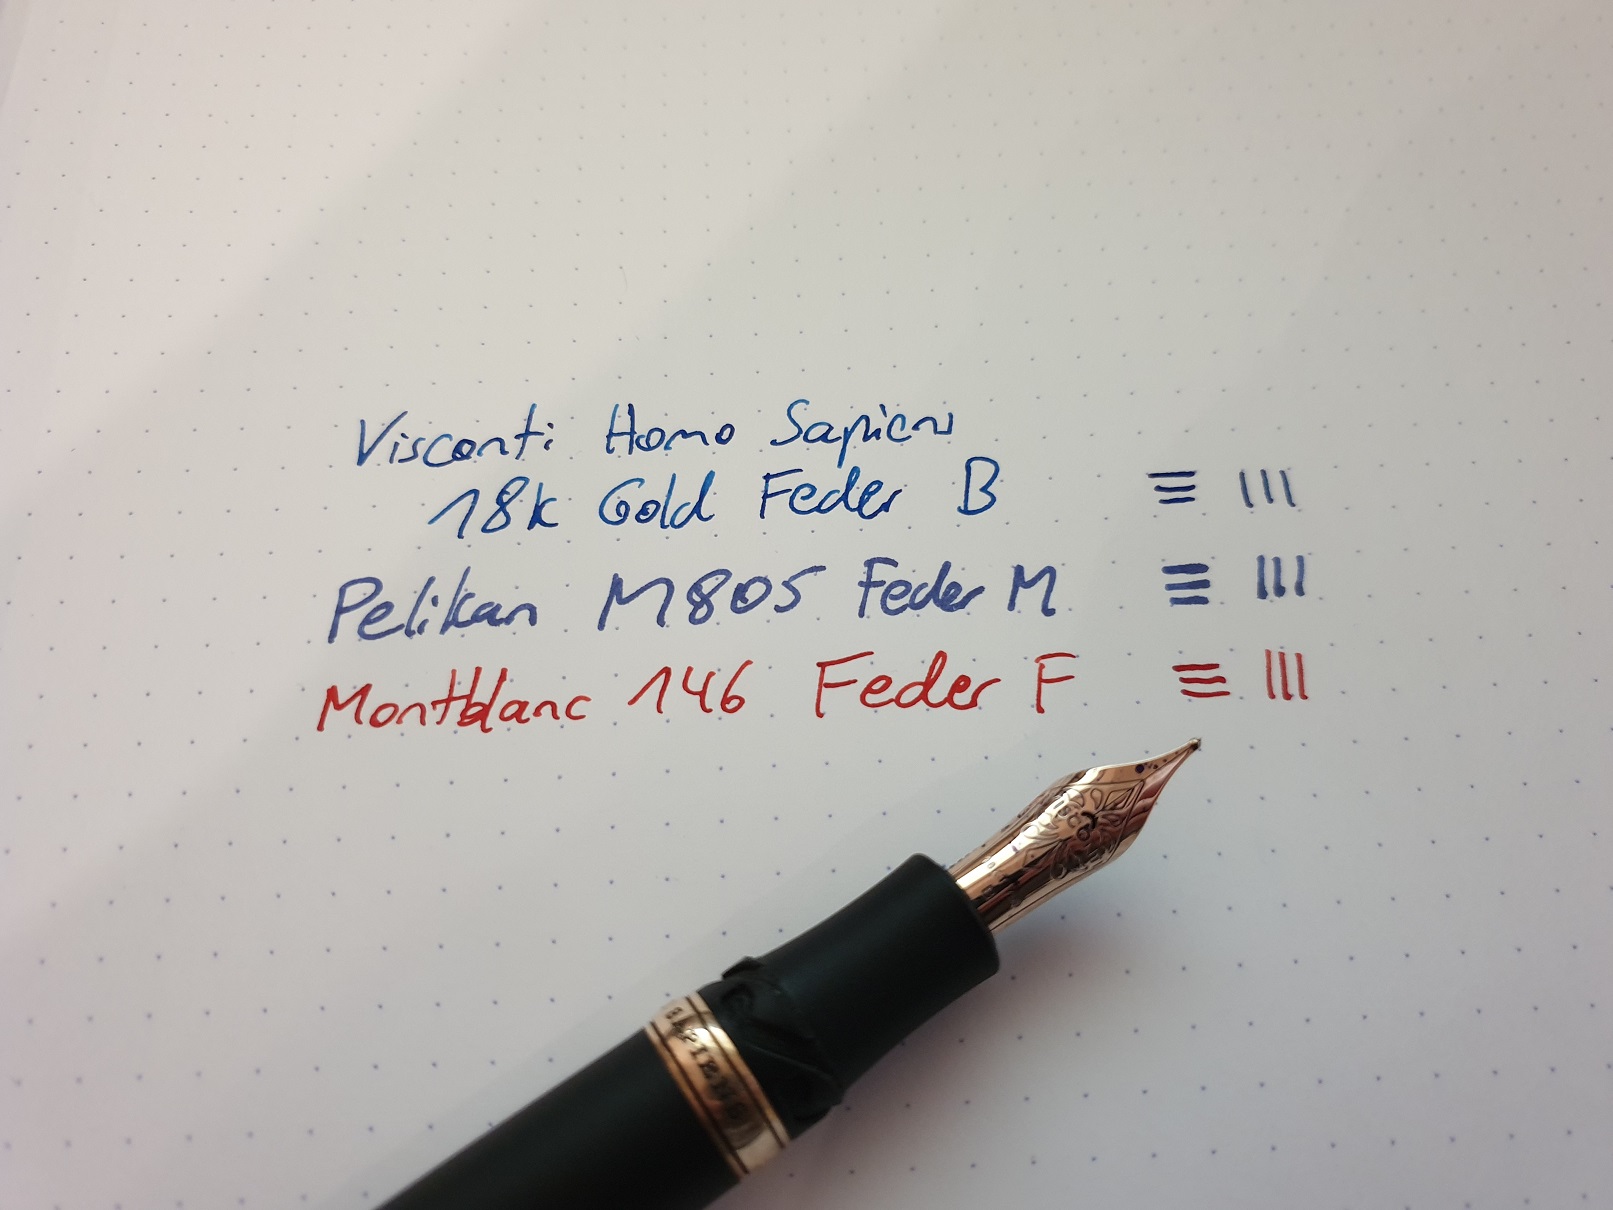 Visconti Homo Sapiens
18k Gold Feder B
Pelikan M805 Feder M
Montblanc 146 Feder F